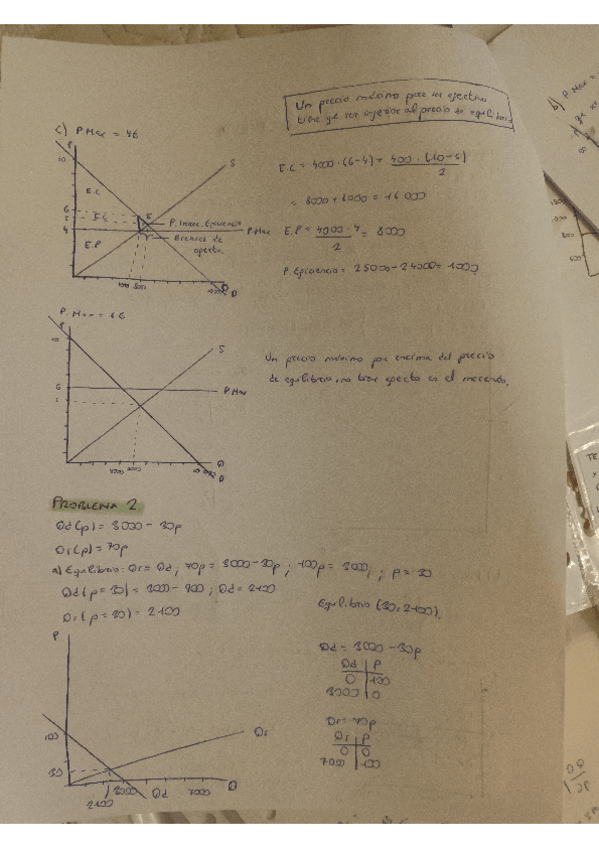 Un precio máximo para ser efectivo
tiene que ser inferior al precio de equilibrio.
c) P.Max = 4€
P
10
S
E.C
6
E.C
E
P. Innec. Eficiencia
4
P.Max
Exceso de
E.P
Q
D
E.C = 4000 · (6-4) +
2
= 8000 + 8000 = 16 000
E.P = 4000 · 4 / 2 = 8000
P. Eficiencia = 25000 - 24000 = 1000
P. Max = 6€
P
10
S
6
P.Max
Q
D
Un precio máximo por encima del precio
de equilibrio, no tiene efecto en el mercado.
PROBLEMA 2
Qd(p) = 3000 - 30p
Or(p) = 70p
a) Equilibrio: Or = Qd ; 70p = 3000 - 30p ; 100p = 3000 ; p = 30
Qd(p = 30) = 3000 - 900 ; Qd = 2100
Or(p = 30) = 2100
Equilibrio (30, 2100).
Qd = 3000 - 30p
Qd P
0 100
3000 0
Or = 70p
Or P
0 0
7000 100
P
100
Or
30
2100
3000
Qd
7000
Q
b) P.Max =